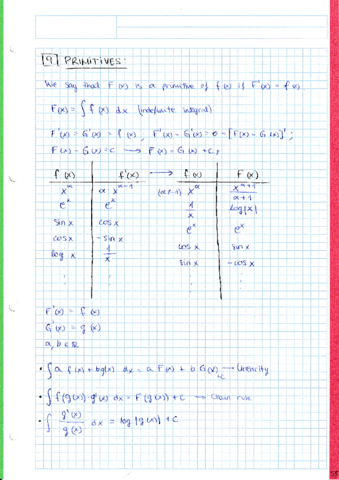 9 PRIMITIVES:
We say that F(x) is a primitive of f(x) if F'(x) = f(x)
F(x) = ∫ f(x) dx (indefinite integral)
F'(x) = G'(x) = f(x), F'(x) - G'(x) = 0 = [F(x) - G(x)]' ;
F(x) - G(x) = C → F(x) = G(x) + C,
f(x) f'(x) → f(x) F(x)
x^α α·x^(α-1) (α≠-1) x^α x^(α+1)/(α+1)
e^x e^x 1/x log|x|
sinx cosx e^x e^x
cosx -sinx cosx sinx
log x 1/x sinx -cosx
⋮ ⋮ ⋮ ⋮
F'(x) = f(x)
G'(x) = g(x)
a, b ∈ ℝ
• ∫ a f(x) + bg(x) dx = a F(x) + b G(x) + C → Linearity
• ∫ f(g(x))·g'(x) dx = F(g(x)) + C → Chain rule
• ∫ g'(x)/g(x) dx = log|g(x)| + C